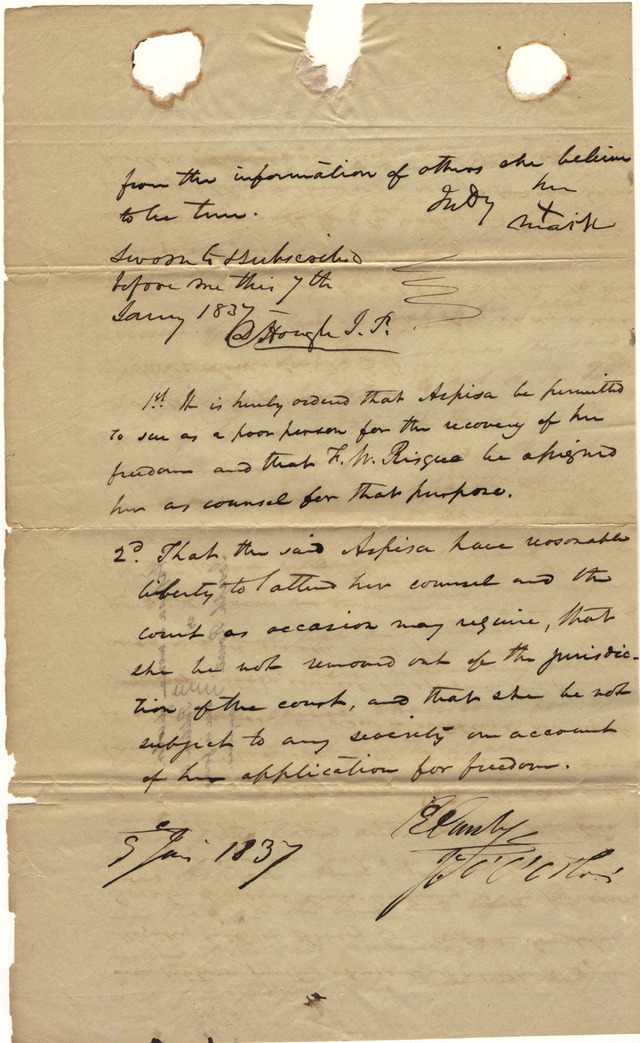 from the information of others she believes
to be true. Judy her
X
mark
Sworn to & subscribed
before me this 7th
Jany 1837
D Hough J. P.
1st It is hereby ordered that Aspisa be permitted
to sue as a poor person for the recovery of her
freedom and that F. W. Risque be assigned
her as counsel for that purpose.
2d. That the said Aspisa have reasonable
liberty to attend her counsel and the
court as occasion may require, that
she be not removed out of the jurisdic-
tion of the court, and that she be not
subject to any severity on account
of her application for freedom.
Jan 1837